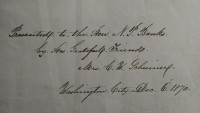 Presented to the Hon. N. P. Banks
by her Grateful Friend
Mrs. C. M.
Washington City Dec. 6. 1870.